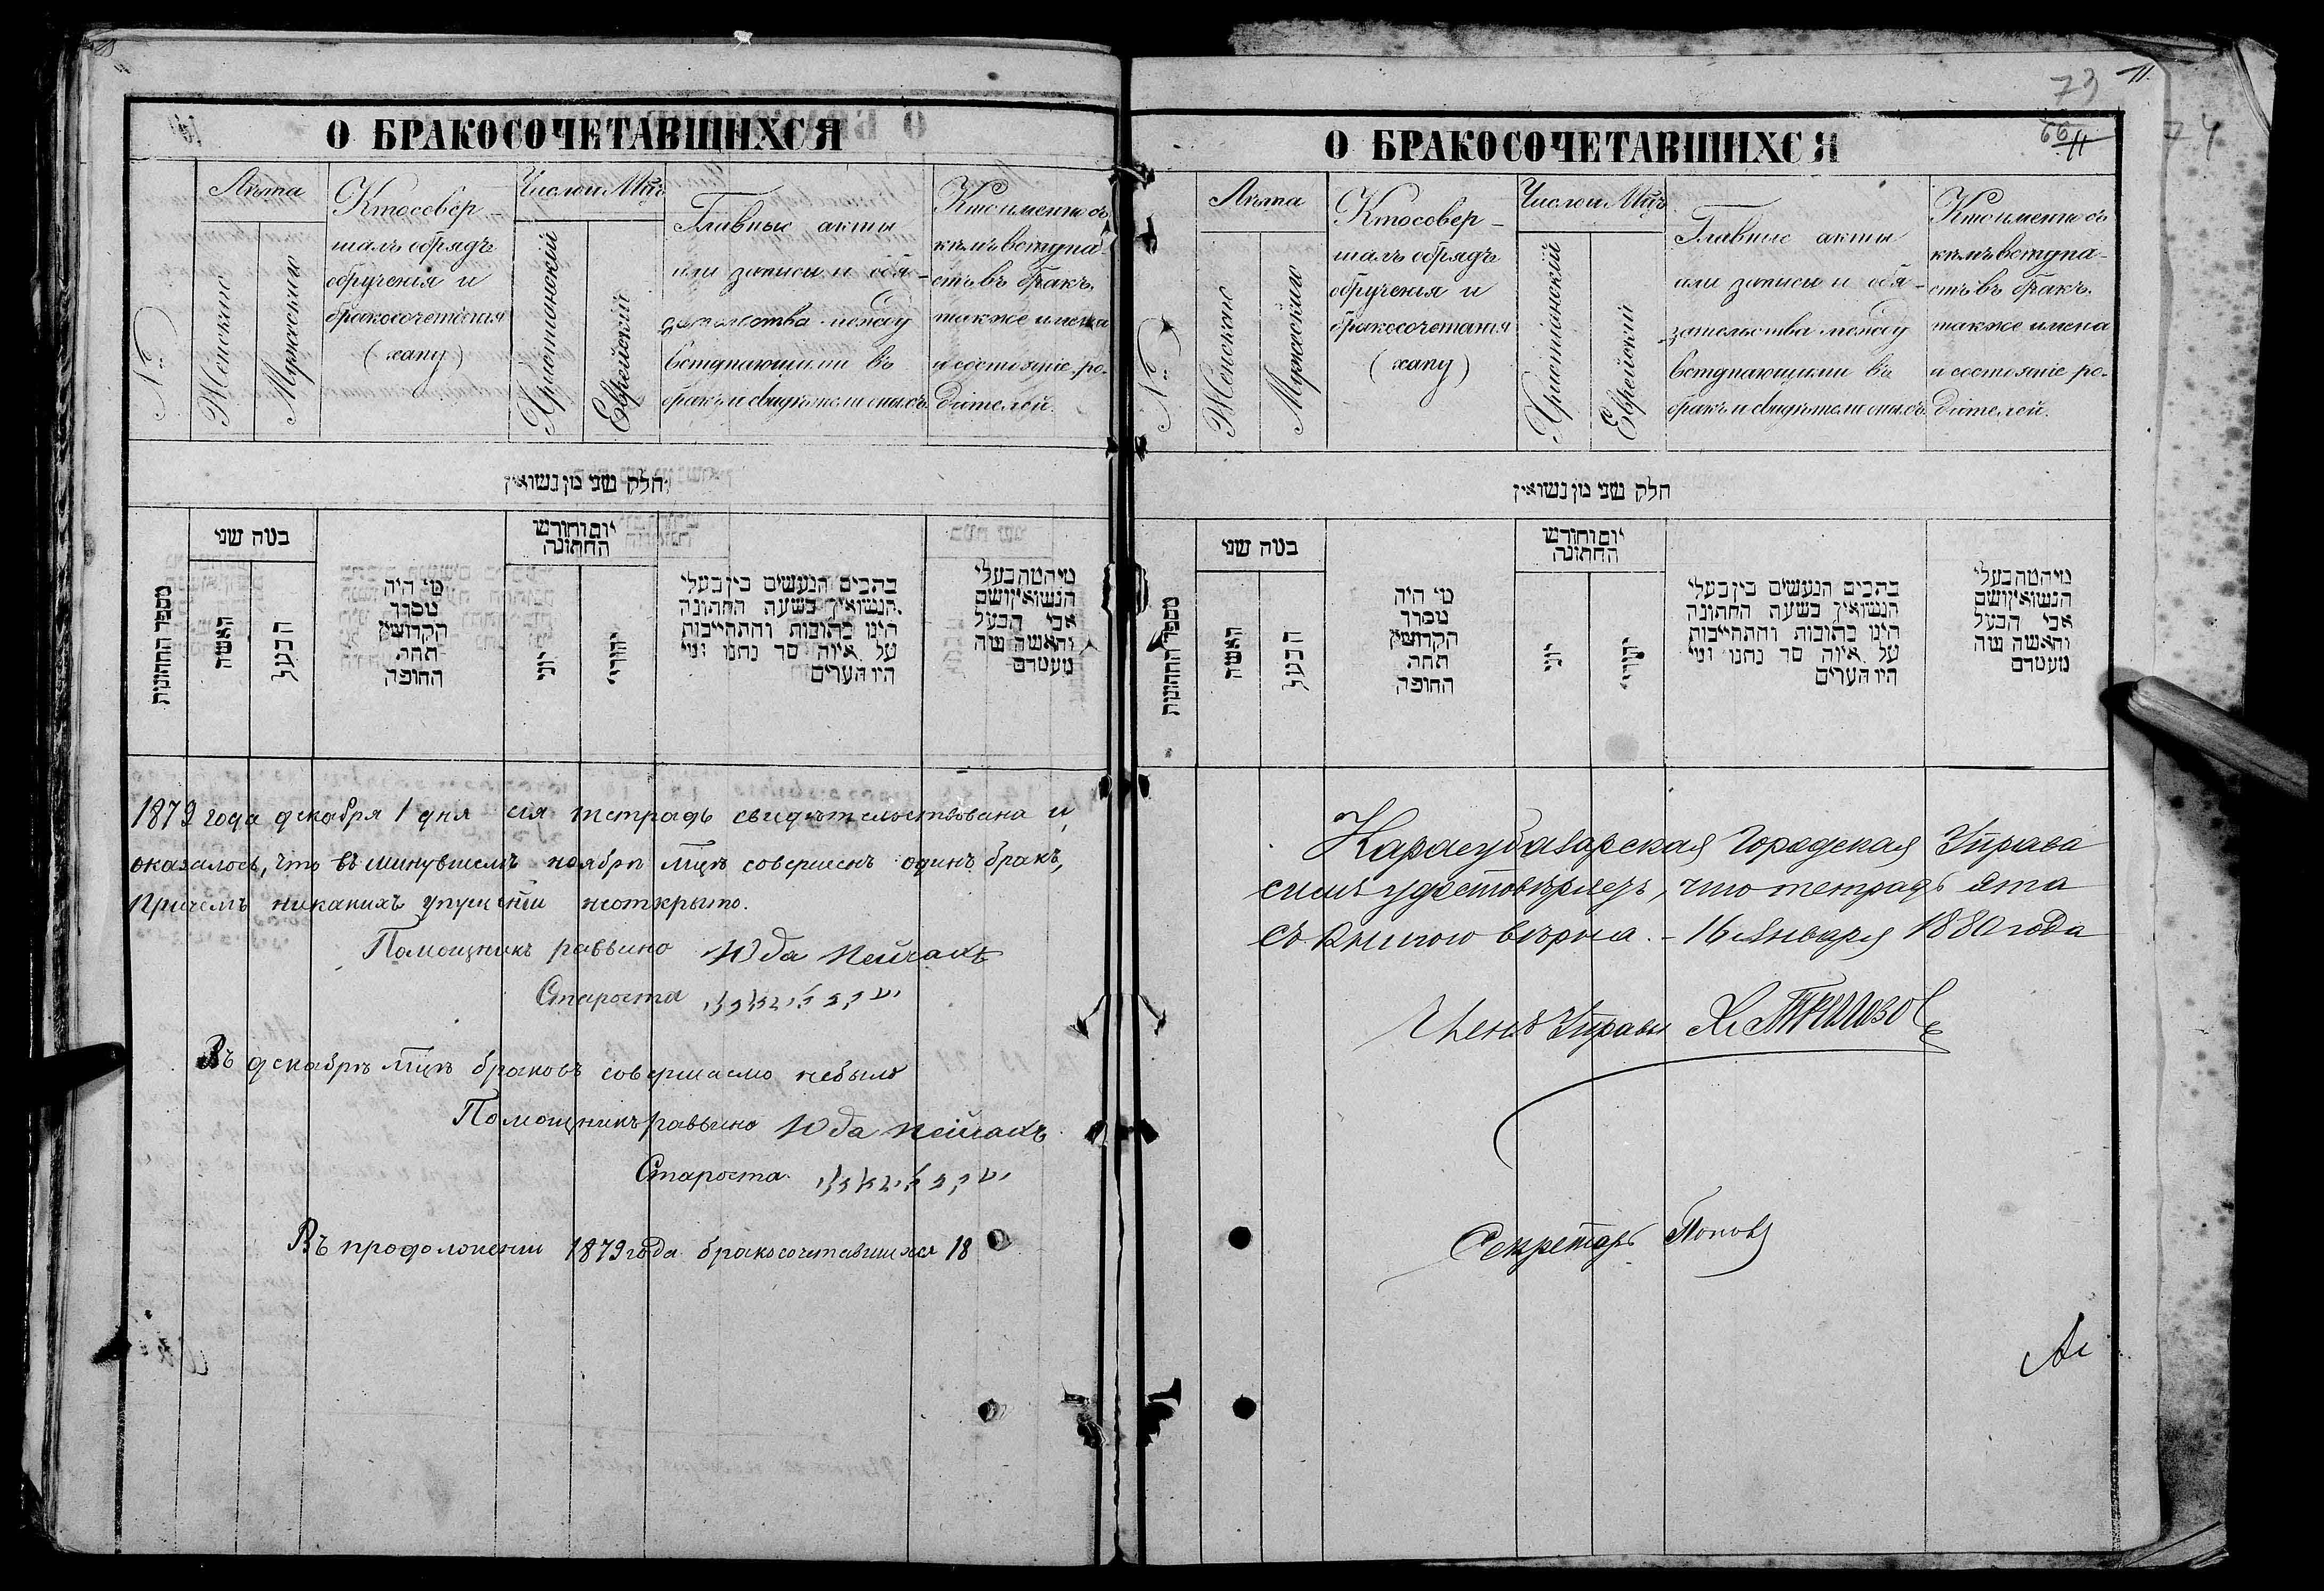 О БРАКОСОЧЕТАВШИХСЯ
№
Лѣта
Женскаго
Мужескаго
Кто совер-
шалъ обрядъ
обрученія и
бракосочетанія
(хапу)
Число и Мцъ
Христіянскій
Еврейскій
Главные акты
или записи и обя-
зательства между
вступающими въ
бракъ и свидѣтели оныхъ.
Кто именно съ
кѣмъ вступа-
етъ въ бракъ.
также имена
и состояніе ро-
дителей.
חלק שני מן נשואין
מספר החתונות
כמה שני
האשה
הבעל
מי היה
מסדר
הקדושין
תחת
החופה
יום וחודש
החתונה
יוני
יהודי
כתבים הנעשים בין בעלי
הנשואין בשעה החתונה
היינו כתובות והתחייבות
על איזה סך נתנו ומי
היו העדים
מי המה בעלי
הנשואין ושם
אבי הבעל
והאשה מה
מעמדם
1879 года декабря 1 дня сія тетрадь свидѣтельствована и
оказалось, что въ минувшемъ ноябрѣ мцѣ совершенъ одинъ бракъ,
причемъ никакихъ упущеній неоткрыто.
Помощникъ раввина Юда Пейсахъ
Староста
Въ декабрѣ мцѣ браковъ совершаемо небыло
Помощникъ раввина Юда Пейсахъ
Староста
Въ продолженіи 1879 года бракосочитавшихся 18
73
11
66
11
74
О БРАКОСОЧЕТАВШИХСЯ
№
Лѣта
Женскаго
Мужескаго
Кто совер-
шалъ обрядъ
обрученія и
бракосочетанія
(хапу)
Число и Мцъ
Христіянскій
Еврейскій
Главные акты
или записи и обя-
зательства между
вступающими въ
бракъ и свидѣтели оныхъ.
Кто именно съ
кѣмъ вступа-
етъ въ бракъ.
также имена
и состояніе ро-
дителей.
חלק שני מן נשואין
מספר החתונות
כמה שני
האשה
הבעל
מי היה
מסדר
הקדושין
תחת
החופה
יום וחודש
החתונה
יוני
יהודי
כתבים הנעשים בין בעלי
הנשואין בשעה החתונה
היינו כתובות והתחייבות
על איזה סך נתנו ומי
היו העדים
מי המה בעלי
הנשואין ושם
אבי הבעל
והאשה מה
מעמדם
Карасубазарская Городская Управа
симъ удостовѣряетъ, что тетрадь эта
съ книгою вѣрна. - 16 Января 1880 года
Членъ Управы
Секретарь Поповъ